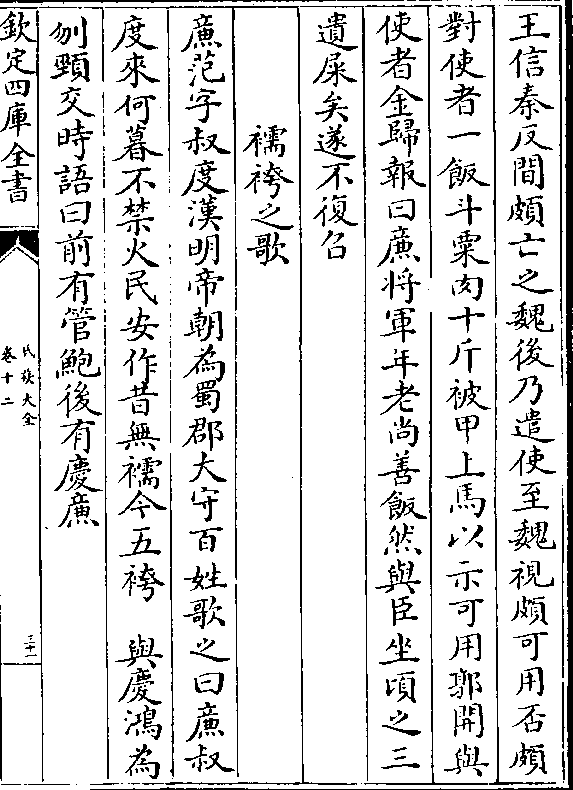 王信秦反間頗亡之魏後乃遣使至魏視頗可用否頗
對使者一飯斗粟肉十斤被甲上馬以示可用郭開與
使者金歸報曰廉將軍年老尚善飯然與臣坐頃之三
遺屎矣遂不復召
襦袴之歌
廉范字叔度漢明帝朝為蜀郡大守百姓歌之曰廉叔
度來何暮不禁火民安作昔無襦今五袴　與慶鴻為
刎頸交時語曰前有管鮑後有慶廉
欽定四庫全書
氏族大全
卷十二
三十一